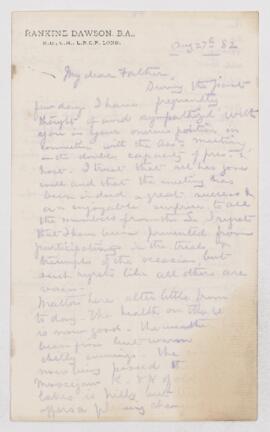 RANKINE DAWSON, B.A.,
M.D., C.M., L.R.C.P. LOND.
Aug 27th 82
My dear Father,
During the past
few days I have frequently
thought of and sympathized with
you in your onerous position in
connection with the Ass. meeting
in the double capacity of pres. &
host. I trust that all has gone
well and that the meeting has
been indeed a great success &
an enjoyable surprise to all
the members from the I regret
that I have been prevented from
participating in the trials &
triumphs of the occasion, but
such regrets like all others are
vain.
Matters here alter little from
to day. The health on the
is now good. The weather
been fine but warm
chilly evenings. The
now being passed
Moosejaw
lakes is hilly and
offers a pleasing